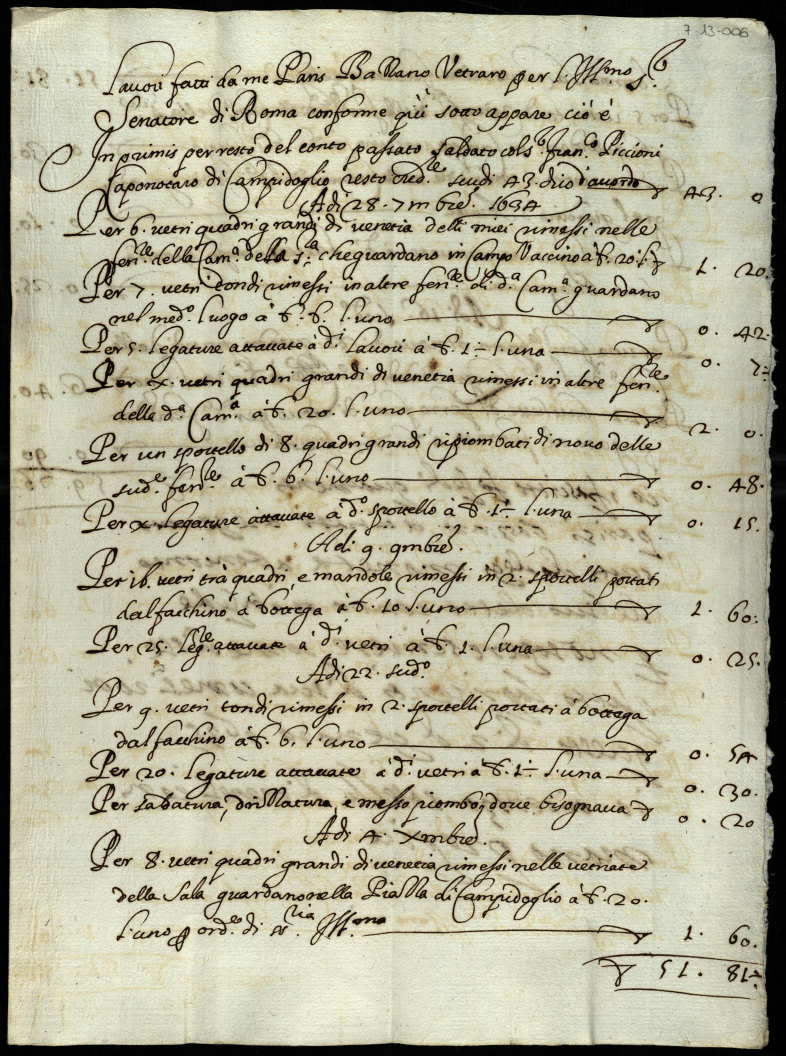 7-13-006
Lavori fatti da me Paris Bassano Vetraro per l'Ill.mo s.r
Senatore di Roma conforme quì sotto appare ciò è
In primis per resto del conto passato saldato col s.r Fran.co Piccioni
Caponotaro di Campidoglio resto scudi 43. dico d'accordo 43. 0
Adi 28. 7mbre. 1634
Per 6. vetri quadri grandi di venetia delli miei rimessi nelle
feri.te della Cam.a della s.ra che guardano in Campo Vaccino à b. 20. l'. 1. 20.
Per 7. vetri tondi rimessi in altre feri.te di d.a Cam.a guardano
nel med.o luogo à b. 6. l'uno 0. 42.
Per 5. legature attaccate à d.i lavori à b. 1½ l'una 0. 7½
Per x. vetri quadri grandi di venetia rimessi in altre feri.te
della d.a Cam.a à b. 20. l'uno 2. 0.
Per un sportello di 8. quadri grandi ripiombati di novo delle
sud.e feri.te à b. 6. l'uno 0. 48.
Per x. legature attaccate à d.o sportello à b. 1½ l'una 0. 15.
Adi 9. 9mbre.
Per 16. vetri trà quadri, e mandole rimessi in 2. sportelli portati
dal facchino à bottega à b. 10 l'uno 1. 60.
Per 25. leg.re attaccate à d.i vetri à b. 1. l'una 0. 25.
Adi 22. sud.o
Per 9. vetri tondi rimessi in 2. sportelli portati à bottega
dal facchino à b. 6. l'uno 0. 54
Per 20. legature attaccate à d.i vetri à b. 1½ l'una 0. 30.
Per labatura, drizzatura, e messo piombo dove bisognava 0. 20
Adi 4. Xmbre.
Per 8. vetri quadri grandi di venetia rimessi nelle vetriate
della Sala guardano nella Piazza di Campidoglio à b. 20.
l'uno p ord.e di s.ria Ill.ma 1. 60.
51. 81½